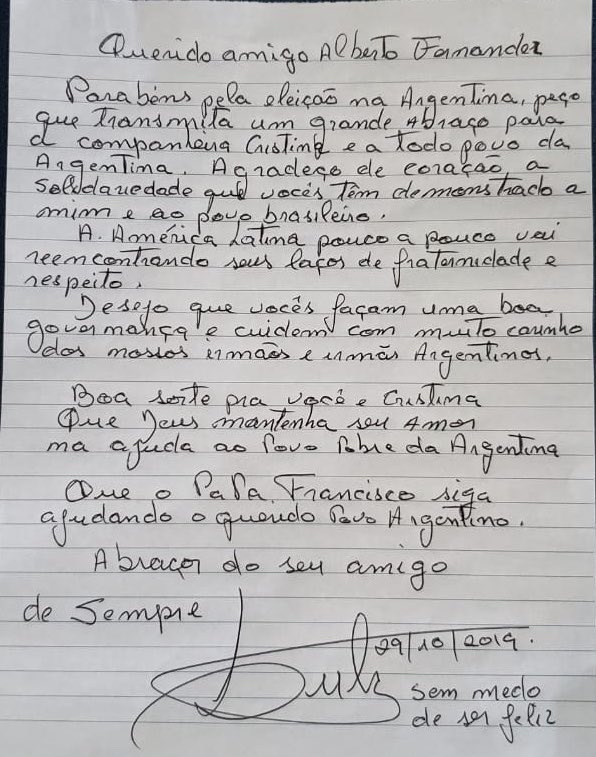 Querido amigo Alberto Fernandez
Parabéns pela eleição na Argentina, peço
que transmita um grande Abraço para
a companheira Cristina e a todo povo da
Argentina. Agradeço de coração a
solidariedade que vocês têm demonstrado a
mim e ao povo brasileiro.
A. América Latina pouco a pouco vai
reencontrando seus laços de fraternidade e
respeito.
Desejo que vocês façam uma boa
governança e cuidem com muito carinho
dos nossos irmãos e irmãs Argentinos.
Boa sorte pra você e Cristina
Que Deus mantenha seu Amor
na ajuda ao Povo Pobre da Argentina
Que o Papa Francisco siga
ajudando o querido Povo Argentino.
Abraços do seu amigo
de Sempre
29/10/2019.
Lula
sem medo
de ser feliz